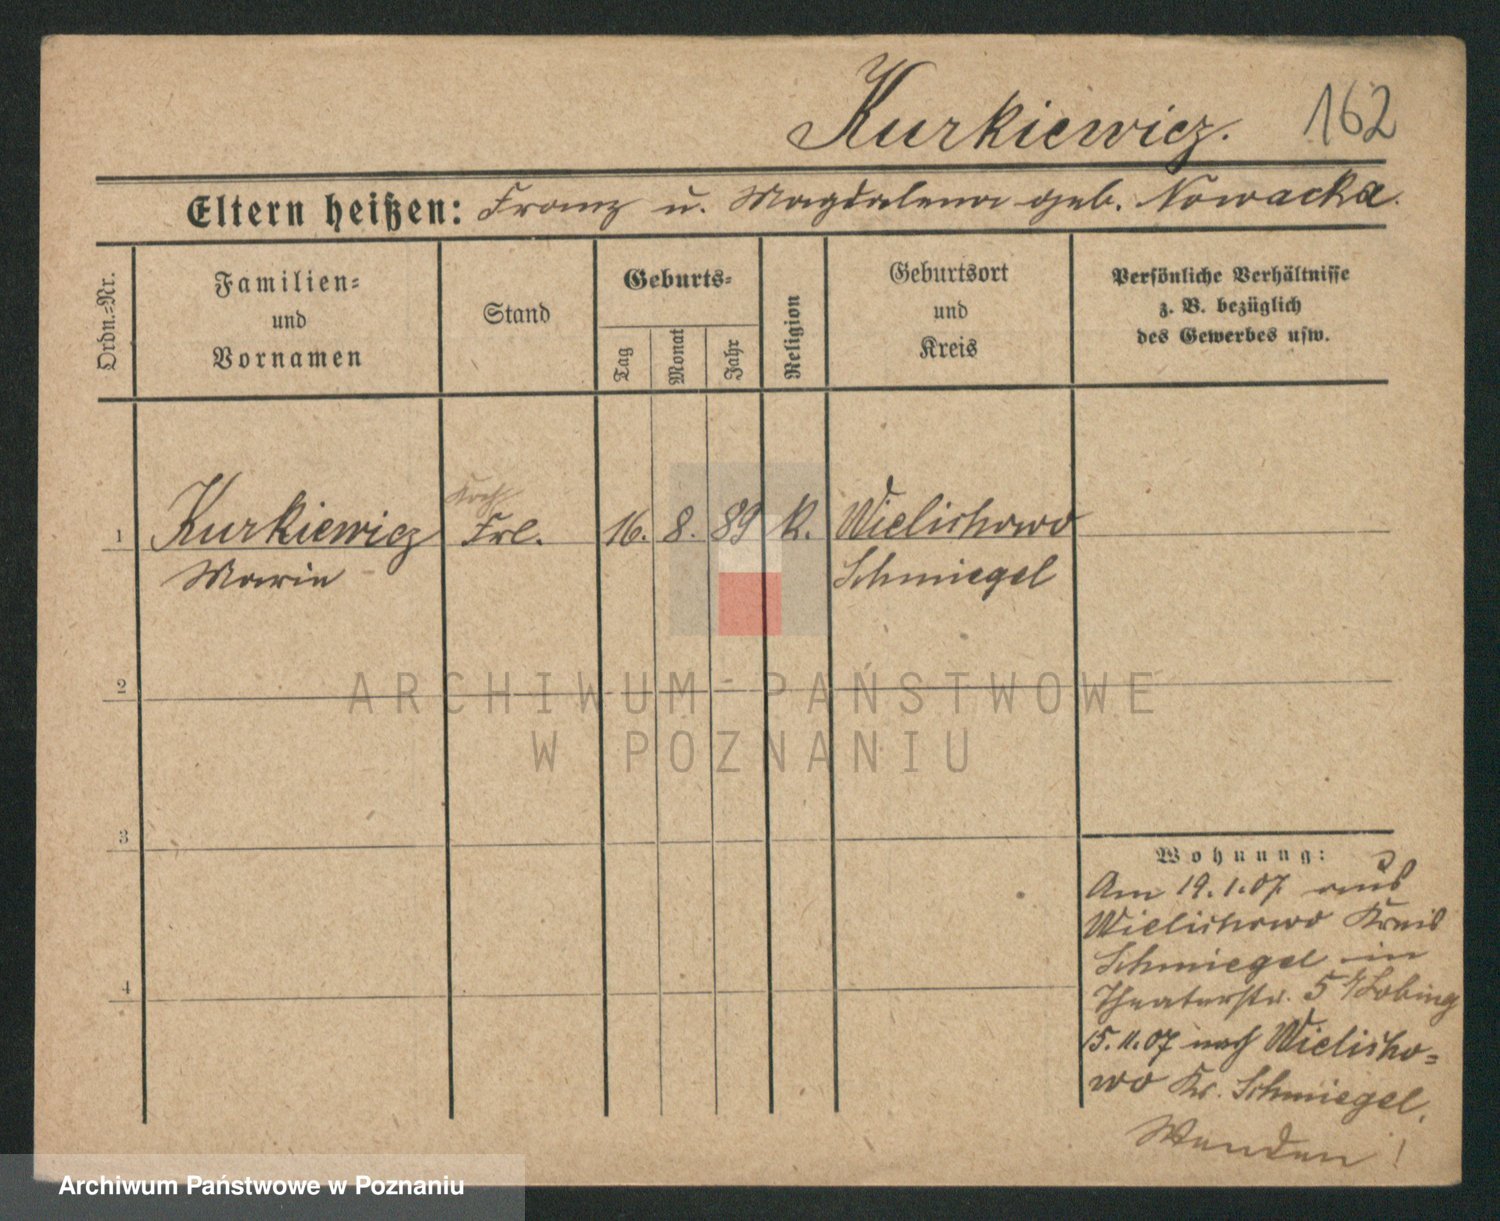 Kurkiewicz. 162
Eltern heißen: Franz u. Magdalena geb. Nowacka.
Ordn.-Nr.
Familien-
und
Vornamen
Stand
Geburts-
Tag
Monat
Jahr
Religion
Geburtsort
und
Kreis
Persönliche Verhältnisse
z. B. bezüglich
des Gewerbes usw.
1 Kurkiewicz Frl. 16. 8. 89 k. Wielichowo
Marie Schmiegel
2
3
4
Wohnung:
Am 19.1.07 aus
Wielichowo Kreis
Schmiegel in
Theaterstr. 5
15.11.07 nach Wielicho=
wo Kr. Schmiegel.
Wenden!
ARCHIWUM PAŃSTWOWE
W POZNANIU
Archiwum Państwowe w Poznaniu